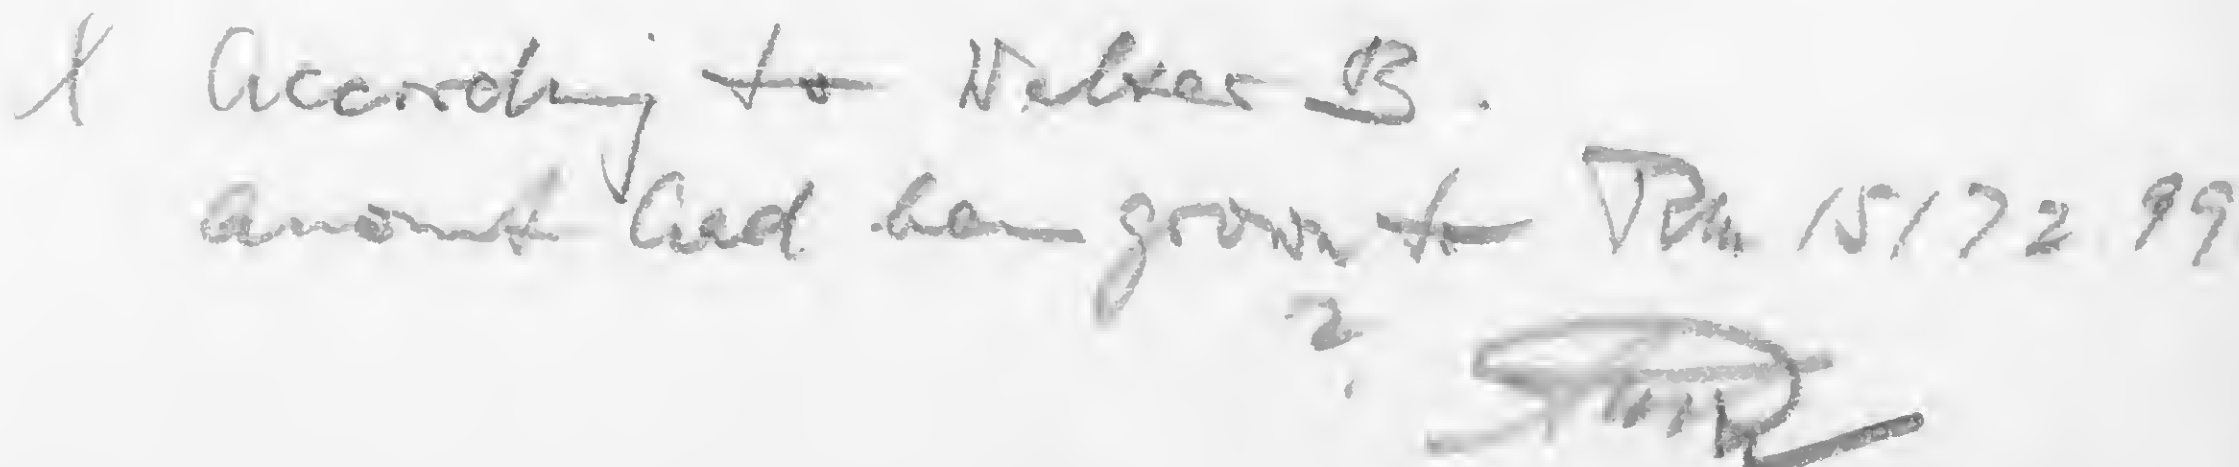 X According to B.
amount had been grown to 15172.99
?